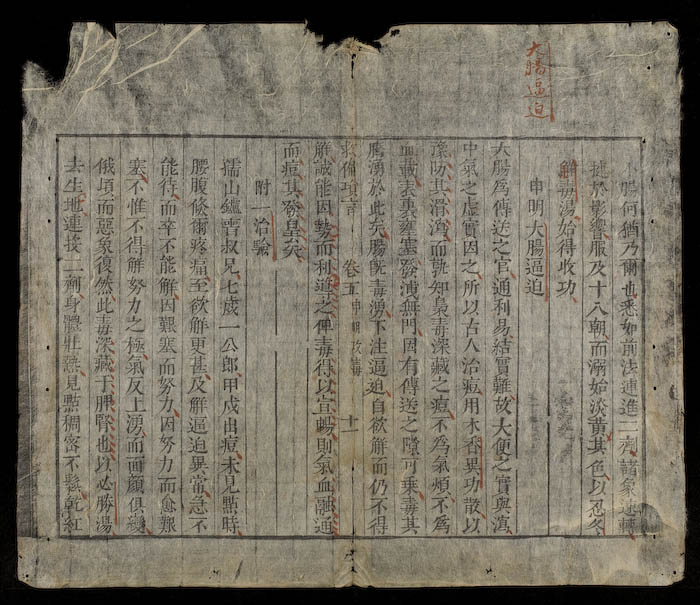 大腸逼迫
小腸何猶乃爾也悉如前法連進二劑諸象速轉
捷於影響服及十八朝而溺始淡黃其色以忍冬
解毒湯始得收功
申明大腸逼迫
大腸為傳送之官通利易結實難故大便之實與滇
中氣之虛實因之所以古人治痘用木香異功散以
豫防其滑瀉而孰知梟毒深藏之痘不為氣煩不為
血載表裏壅塞發潰無門固有傳送之隙可乘毒其
湧於此矣腸既毒湧下注逼迫自欲解而仍不得
解誠能因勢而利道之俾毒得以宣暢則氣血融通
而痘其發皇矣
救偏瑣言
卷五
申明改毒
十一
附一治驗
孺山鑪曾叔兄七歲一公郎甲戌出痘未見點時
腰腹倏爾疼痛至欲解更甚及解逼迫異常急不
能待而卒不能解因艱塞而努力因努力而愈艱
塞不惟不得解努力之極氣反上湧而面顏俱變
俄頃而惡象復然此毒深藏于脾腎也以必勝湯
去生地連投二劑身體壯熱見點稠密不鬆乾紅